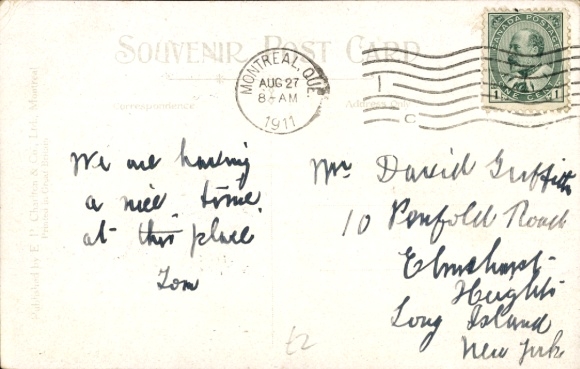 SOUVENIR POST CARD
Correspondence
Address Only
MONTREAL, QUE.
AUG 27
8- AM
1911
CANADA POSTAGE
1 ONE CENT 1
We are having
a nice time
at this place
Tom
Mr David Griffiths
10 Penfold Road
Elmshurst-
Heights
Long Island
New York
Published by E. P. Charlton & Co., Ltd., Montreal
Printed in Great Britain